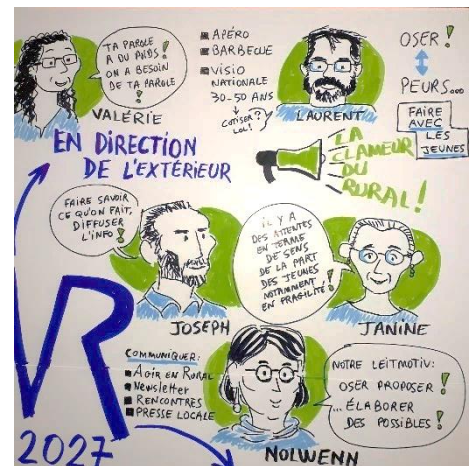 TA PAROLE
A DU POIDS !
ON A BESOIN
DE TA PAROLE
!
VALÉRIE
APÉRO
BARBECUE
VISIO
NATIONALE
30-50 ANS
COTISER ?
LOL !
LAURENT
OSER !
PEURS...
FAIRE
AVEC
LES
JEUNES
EN DIRECTION
DE L'EXTÉRIEUR
LA
CLAMEUR
DU
RURAL !
FAIRE SAVOIR
CE QU'ON FAIT,
DIFFUSER
L'INFO !
JOSEPH
IL Y A
DES ATTENTES
EN TERME
DE SENS
DE LA PART
DES JEUNES
NOTAMMENT
EN FRAGILITÉ !
JANINE
COMMUNIQUER:
AGIR EN RURAL
Newsletter
RENCONTRES
PRESSE LOCALE
R
2027
NOLWENN
NOTRE LEITMOTIV:
OSER PROPOSER !
... ÉLABORER
DES POSSIBLES !